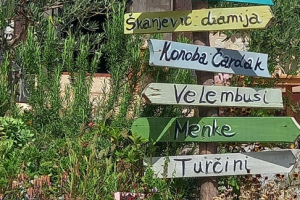 Škanjević - diamija
Konoba Čardak
Velembuši
Menke
Turčini